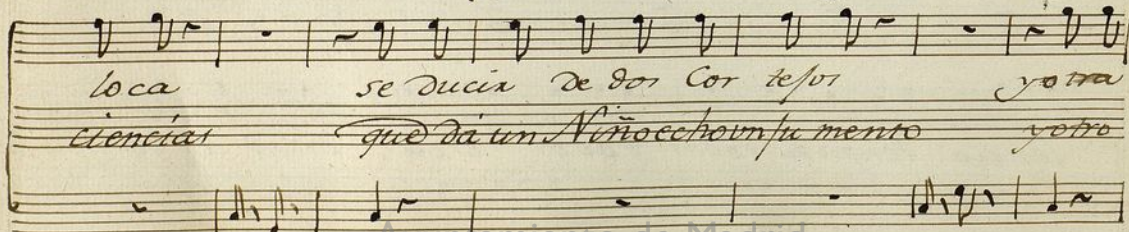 loca se ducir de dos Cor tejos y otra
ciencias que dá un Niño echo un ju mento y otro
Ayuntamiento de Madrid